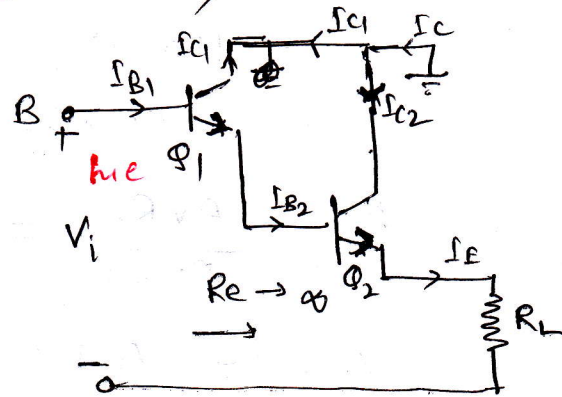 IC1 IC1 IC
IB1
B
+
IC2
hie
Q1
IB2
Vi
IE
Re → ∞
Q2
RL
−